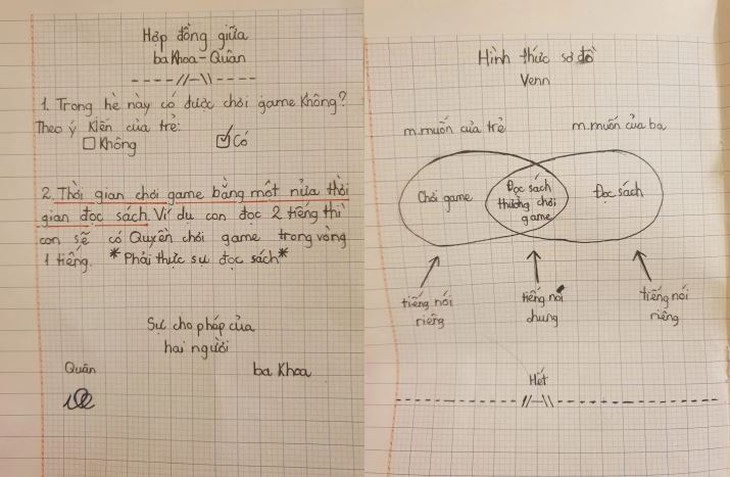 Hợp đồng giữa
ba Khoa - Quân
1. Trong hè này có được chơi game không?
Theo ý kiến của trẻ:
Không
Có
2. Thời gian chơi game bằng một nửa thời
gian đọc sách. Ví dụ con đọc 2 tiếng thì
con sẽ có Quyền chơi game trong vòng
1 tiếng. *Phải thực sự đọc sách*
Sự cho phép của
hai người
Quân
ba Khoa
Hình thức sơ đồ
Venn
m.muốn của trẻ
m.muốn của ba
Chơi game
Đọc sách
thưởng chơi
game
Đọc sách
tiếng nói
riêng
tiếng nói
chung
tiếng nói
riêng
Hết